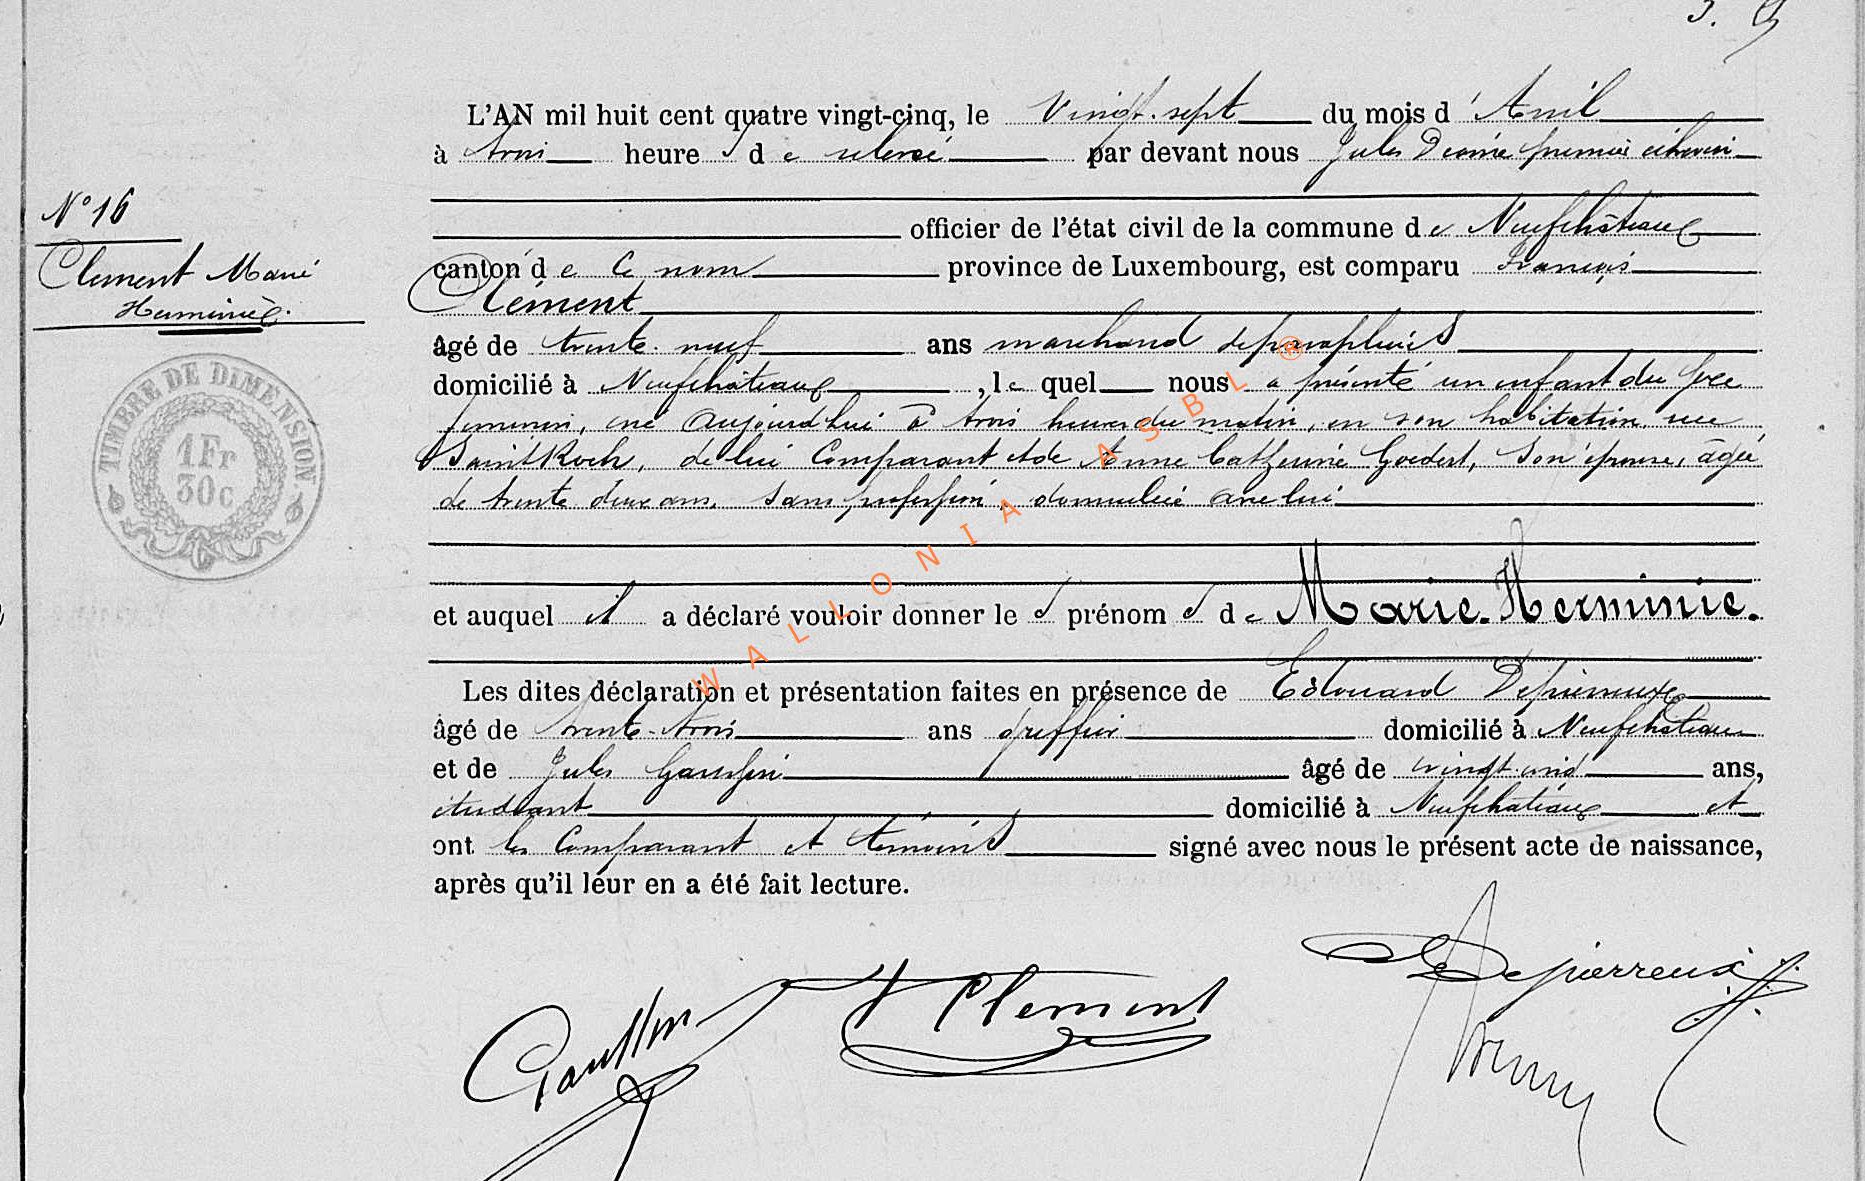 L'AN mil huit cent quatre vingt-cinq, le Vingt-sept du mois d'Avril
à trois heures de relevé par devant nous Jules premier échevin
officier de l'état civil de la commune de Neufchâteau
N° 16
Clement Marie
Herminie.
canton de ce nom province de Luxembourg, est comparu François
Clément
âgé de trente-neuf ans marchand de parapluies
domicilié à Neufchâteau, le quel nous a présenté un enfant du sexe
feminin, né aujourd'hui à trois heures du matin, en son habitation rue
Saint Roch, de lui Comparant et de Anne Catherine Goedert, son épouse, âgée
de trente deux ans, sans profession, domiciliée avec lui
TIMBRE DE DIMENSION
1 Fr
30c
et auquel il a déclaré vouloir donner les prénoms de Marie-Herminie.
Les dites déclaration et présentation faites en présence de Edouard Depierreux
âgé de trente-trois ans greffier domicilié à Neufchâteau
et de Jules Gausset âgé de vingt-un ans,
étudiant domicilié à Neufchâteau et
ont les Comparant et témoins signé avec nous le présent acte de naissance,
après qu'il leur en a été fait lecture.
WALLONIA ASBL ®
Clement
Depierreux